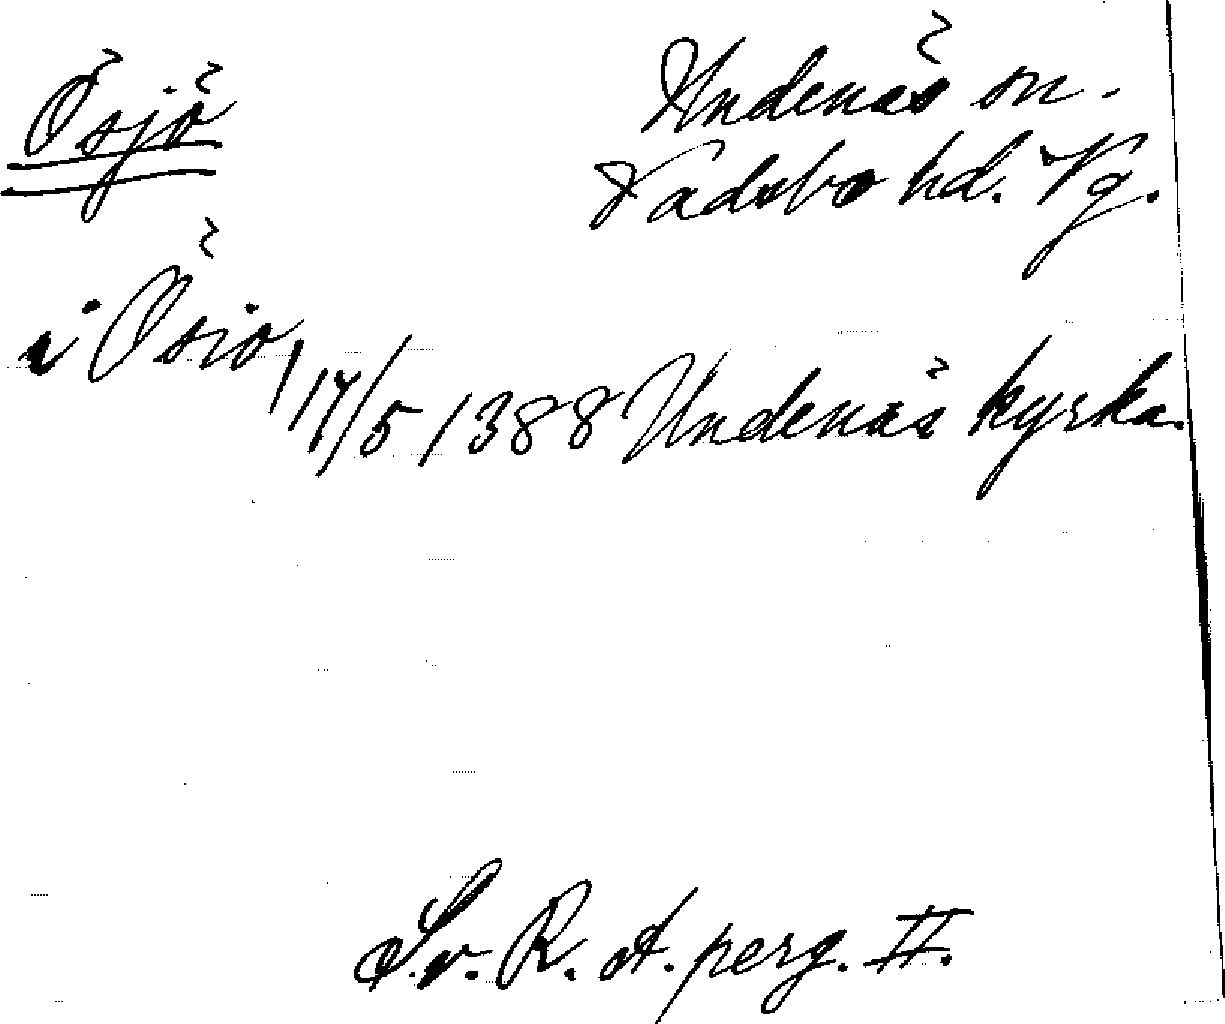 Ösjö
Undenäs sn.
Vadsbo hd. Vg.
i Ösio, 17/5 1388 Undenäs kyrka.
Sv. R. A. perg. II.